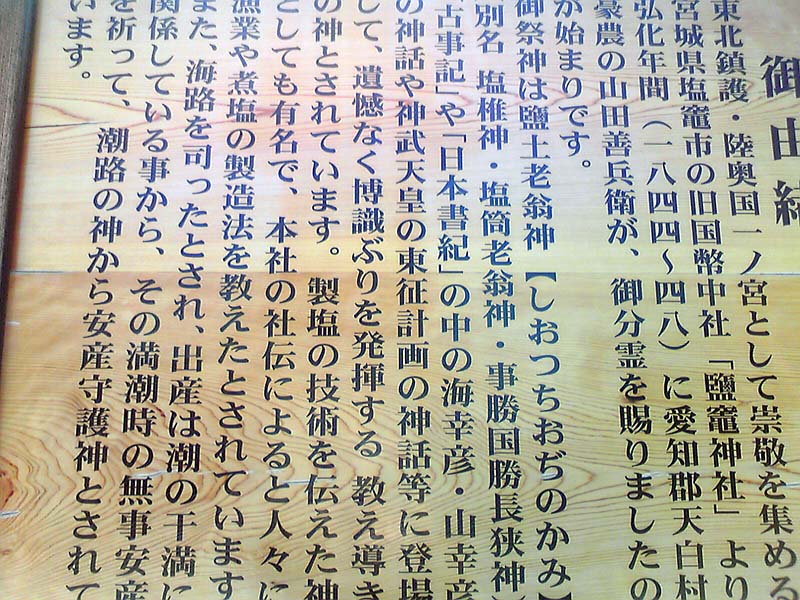 御由緒
東北鎮護・陸奥国一ノ宮として崇敬を集める
宮城県塩竈市の旧国幣中社「鹽竈神社」より
弘化年間（一八四四～四八）に愛知郡天白村
豪農の山田善兵衛が、御分霊を賜りましたの
が始まりです。
御祭神は鹽土老翁神【しおつちおぢのかみ】
別名 塩椎神・塩筒老翁神・事勝国勝長狭神
古事記」や「日本書紀」の中の海幸彦・山幸彦
の神話や神武天皇の東征計画の神話等に登場
して、遺憾なく博識ぶりを発揮する 教え導き
の神とされています。製塩の技術を伝えた神
としても有名で、本社の社伝によると人々に
漁業や煮塩の製造法を教えたとされています
また、海路を司ったとされ、出産は潮の干満に
関係している事から、その満潮時の無事安産
を祈って、潮路の神から安産守護神とされて
います。